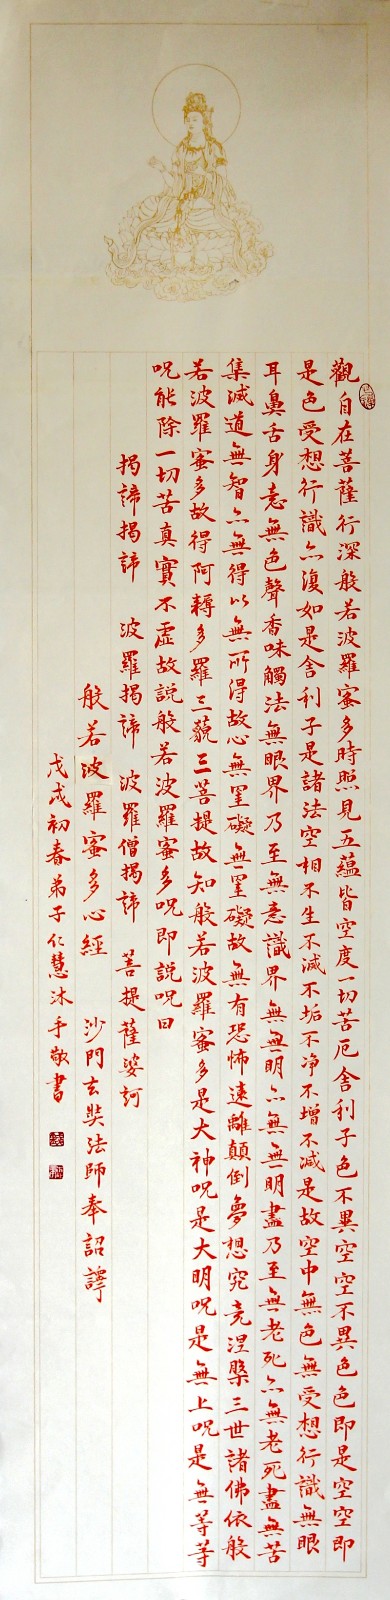 觀自在菩薩行深般若波羅蜜多時照見五蘊皆空度一切苦厄舍利子色不異空空不異色色即是空空即
是色受想行識亦復如是舍利子是諸法空相不生不滅不垢不淨不增不減是故空中無色無受想行識無眼
耳鼻舌身意無色聲香味觸法無眼界乃至無意識界無無明亦無無明盡乃至無老死亦無老死盡無苦
集滅道無智亦無得以無所得故心無罣礙無罣礙故無有恐怖遠離顛倒夢想究竟涅槃三世諸佛依般
若波羅蜜多故得阿耨多羅三藐三菩提故知般若波羅蜜多是大神呪是大明呪是無上呪是無等等
呪能除一切苦真實不虛故說般若波羅蜜多呪即說呪曰
揭諦揭諦 波羅揭諦 波羅僧揭諦 菩提薩婆訶
般若波羅蜜多心經 沙門玄奘法師奉詔譯
戊戌初春弟子仁慧沐手敬書